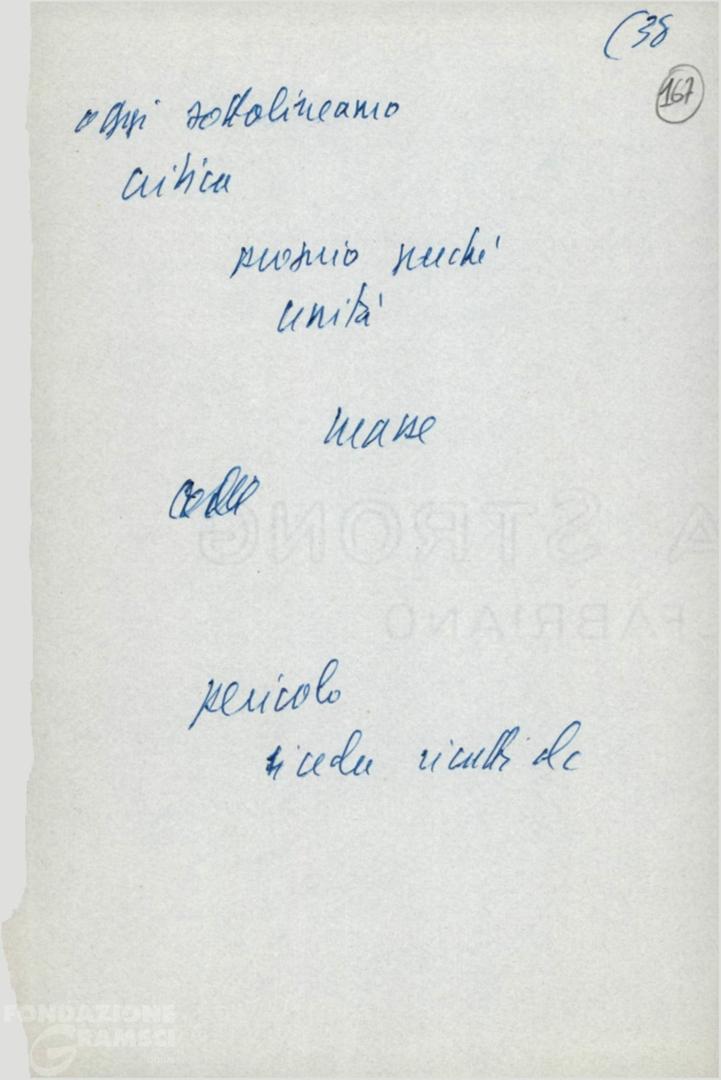 (38
167
oggi sottolineamo
critica
proprio perché
unità
masse
pericolo
si cede ricatti dc
A STRONG
FABRIANO
FONDAZIONE
GRAMSCI